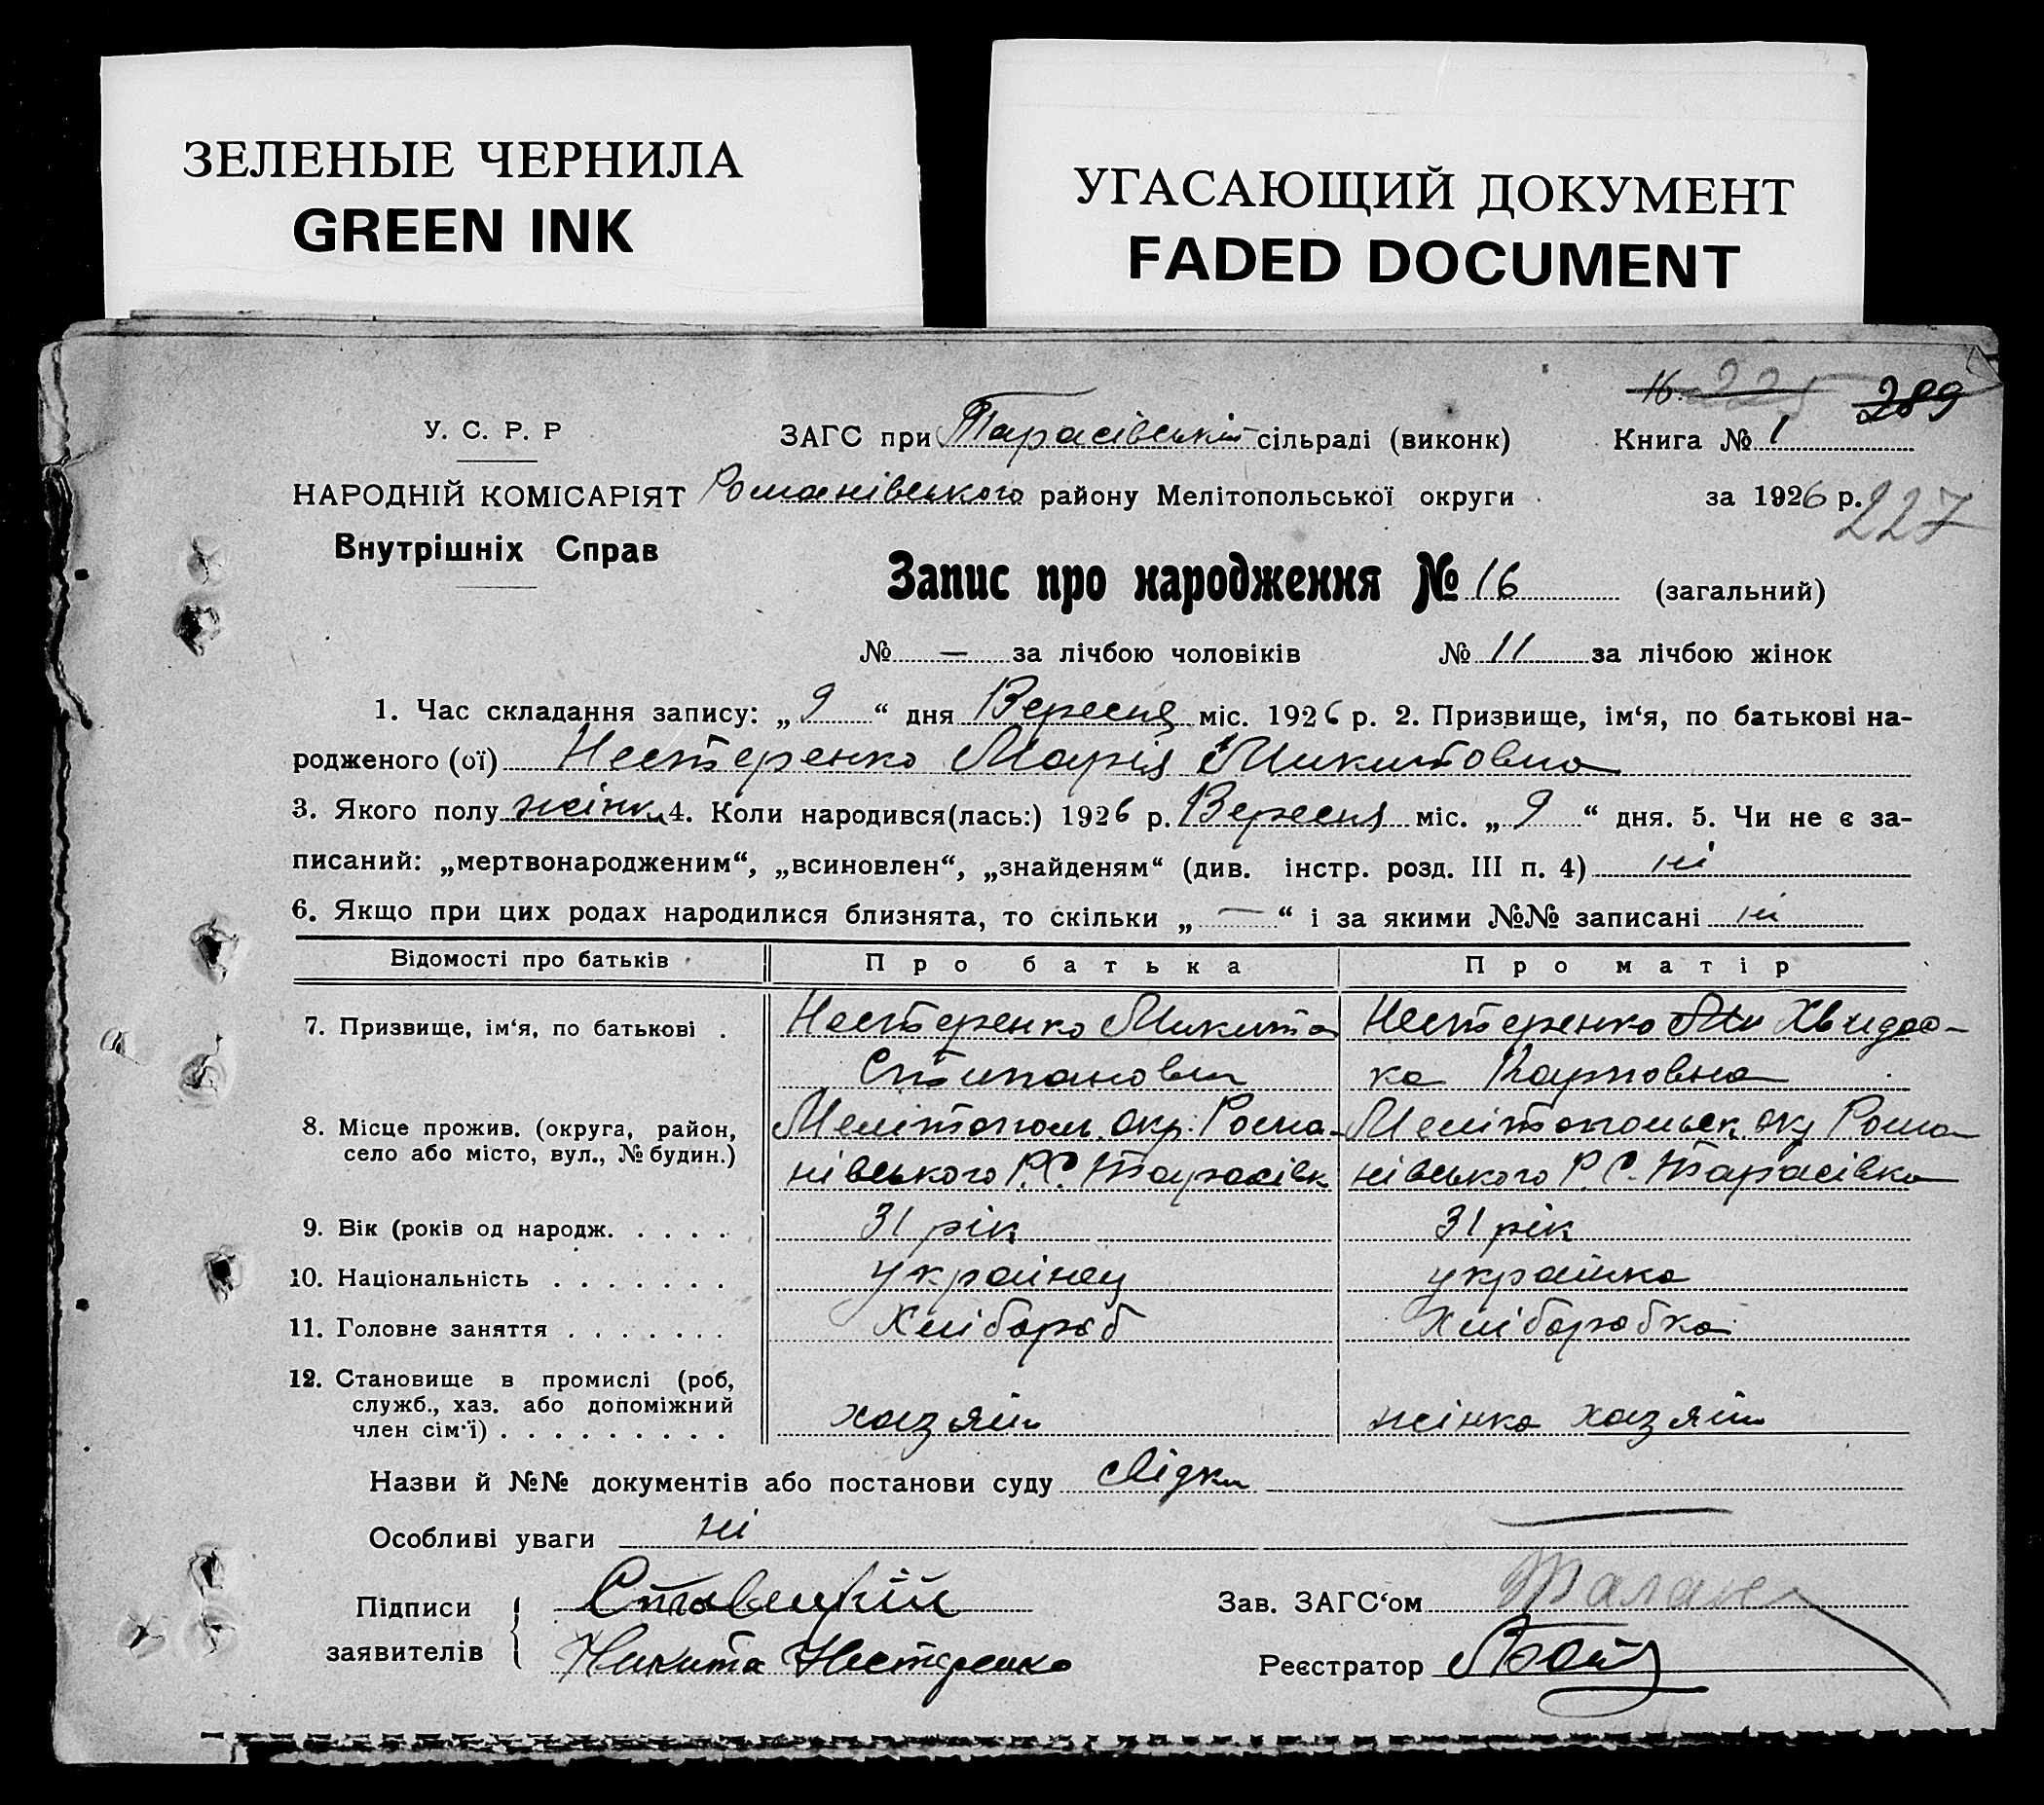 ЗЕЛЕНЫЕ ЧЕРНИЛА
GREEN INK
УГАСАЮЩИЙ ДОКУМЕНТ
FADED DOCUMENT
16 225 289
У. С. Р. Р
ЗАГС при Тарасівській сільраді (виконк)
Книга № 1
НАРОДНІЙ КОМІСАРІЯТ
Романівського району Мелітопольської округи
за 1926 р.
227
Внутрішніх Справ
Запис про народження № 16 (загальний)
№ — за лічбою чоловіків № 11 за лічбою жінок
1. Час складання запису: „ 9 “ дня Вересня міс. 1926 р. 2. Призвище, ім‘я, по батькові на-
родженого (ої) Нестеренко Марія Микитовна
3. Якого полу жінки 4. Коли народився(лась:) 1926 р. Вересня міс. „ 9 “ дня. 5. Чи не є за-
писаний: „мертвонародженим“, „всиновлен“, „знайденям“ (див. інстр. розд. III п. 4) ні
6. Якщо при цих родах народилися близнята, то скільки „ — “ і за якими №№ записані ні
Відомості про батьків
Про батька
Про матір
7. Призвище, ім‘я, по батькові .
Нестеренко Микита
Стипанович
Нестеренко Ми Хвидос-
ка Карповна
8. Місце прожив. (округа, район,
село або місто, вул., № будин.)
Мелітополь. окр. Рома-
нівського Р. С. Тарасівк
Мелітопольск. окр Рома
нівського Р. С. Тарасівка
9. Вік (років од народж. . . . .
31 рік
31 рік
10. Національність . . . . . . .
українец
українка
11. Головне заняття . . . . . . .
Хліборіб
Хліборобка
12. Становище в промислі (роб,
служб., хаз. або допоміжний
член сім‘ї) . . . . . . . . .
хазяїн
жінка хазяїн
Назви й №№ документів або постанови суду свідки
Особливі уваги ні
Підписи
заявителів
Никита Нестеренко
Зав. ЗАГС‘ом Талан
Реєстратор